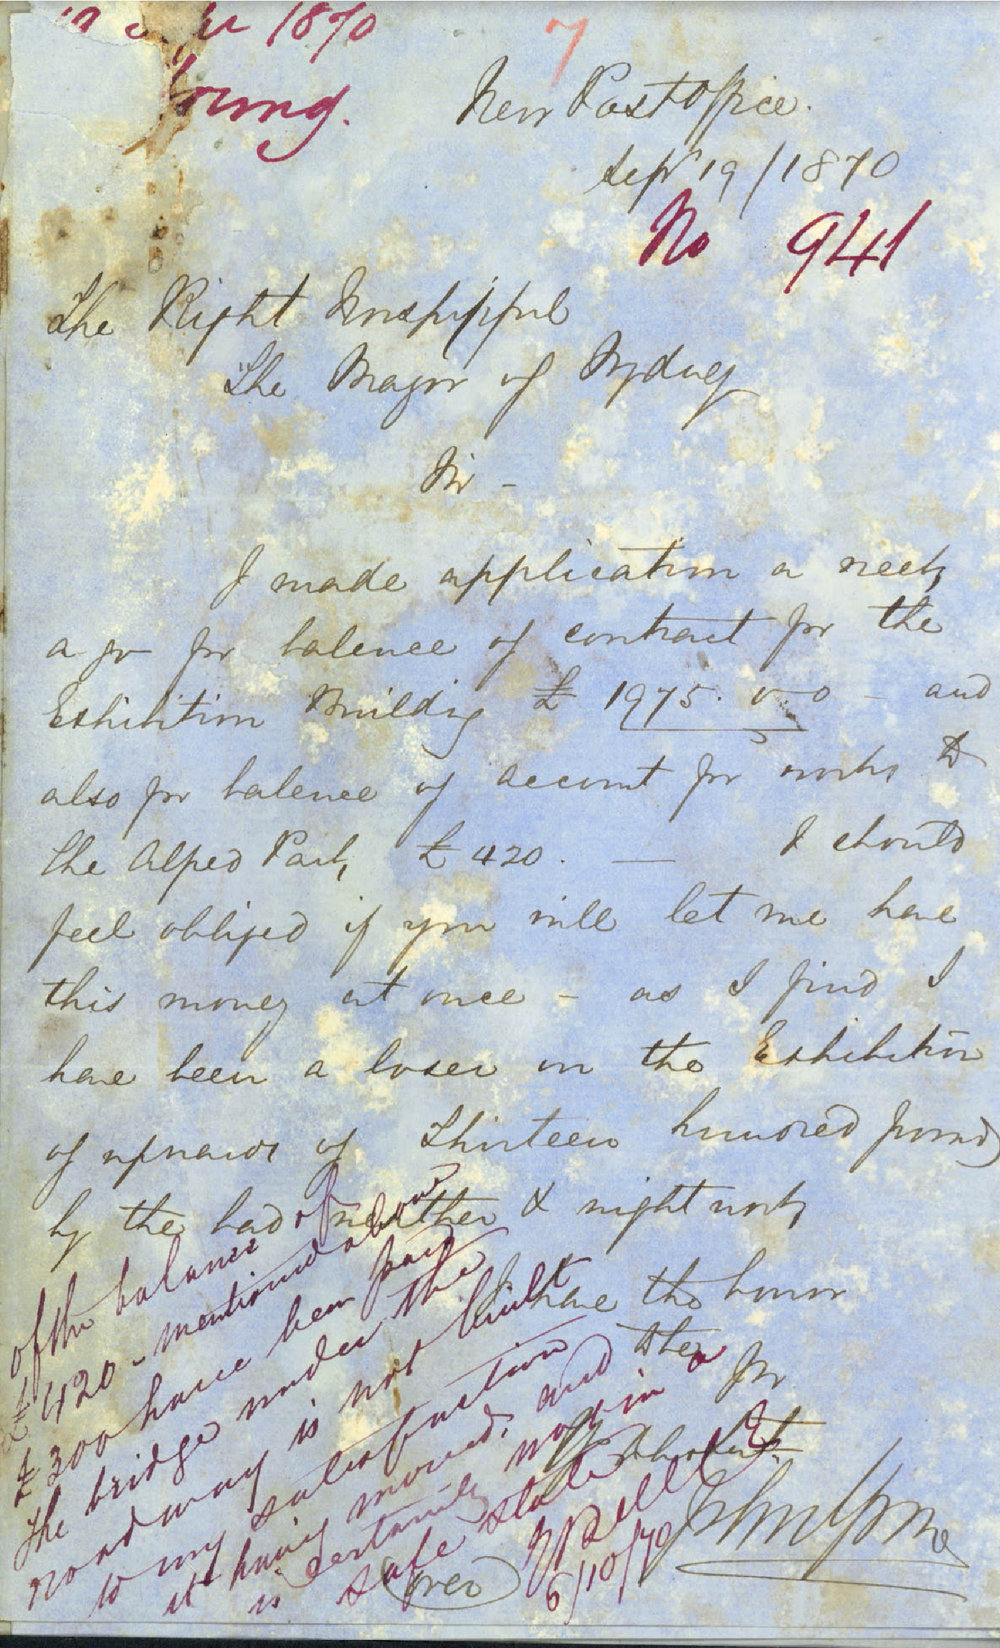 1870
7
Young.
New Post Office.
Sepr 19/1870
No 941
The Right Worshipful
The Mayor of Sydney
Sir -
I made application a week
ago for balance of contract for the
Exhibition Building £ 1975. 0-0 - and
also for balance of account for works to
the Alfred Park £420. — I should
feel obliged if you will let me have
this money at once - as I find I
have been a loser on the Exhibition
of upwards of Thirteen hundred pounds
by the bad weather & night work
I have the honor
Sir
John Young
of the balance of
£420 - mentioned above
£300 have been paid
The bridge under the
roadway is not built
to my satisfaction
it having moved, and
is certainly not in a
safe state
Bell CE
6/10/70
(over)